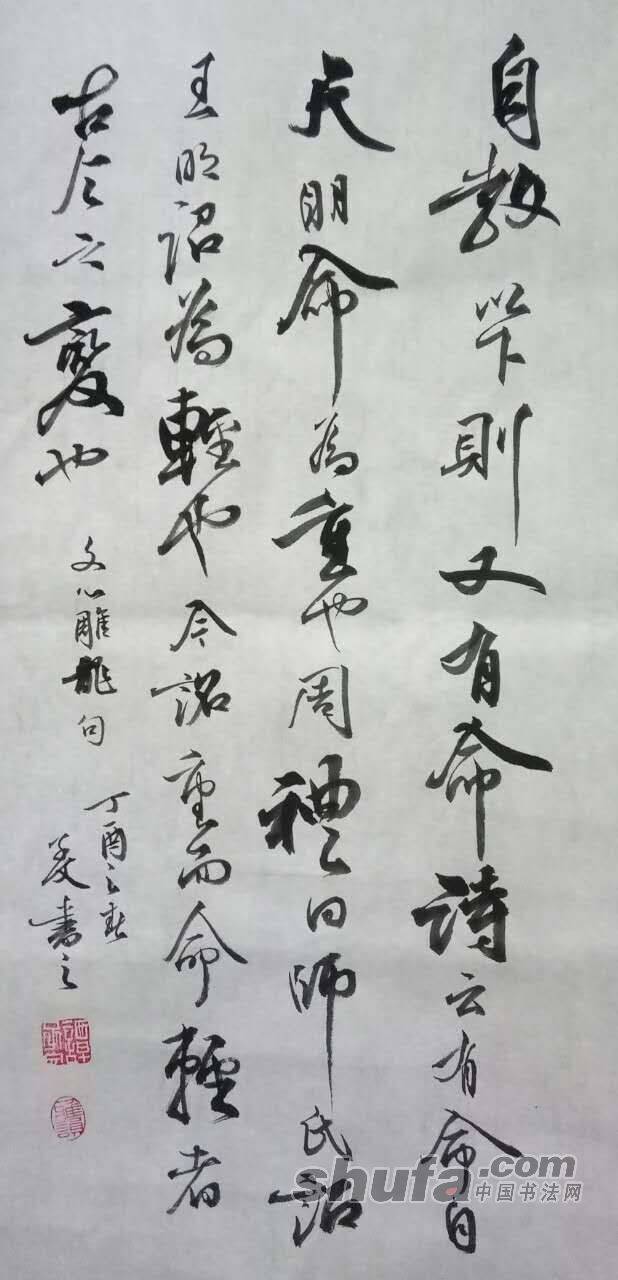 自教以下則又有命詩云有命自
天明命為重也周禮曰師氏詔
王明詔為輕也今詔重而命輕者
古今之變也
文心雕龍句
丁酉之春
書之
shufa.com
中国书法网